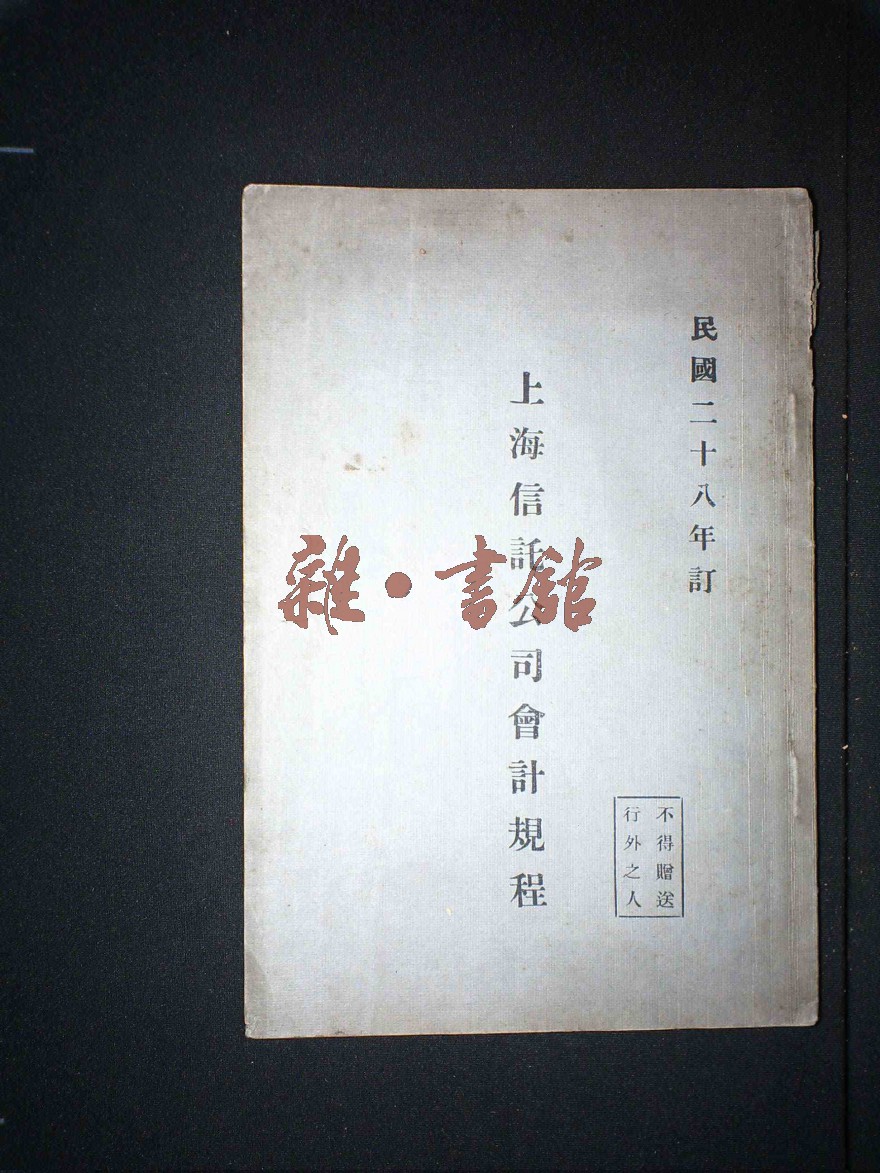 民國二十八年訂
上海信託公司會計規程
不得贈送
行外之人
雜·書館